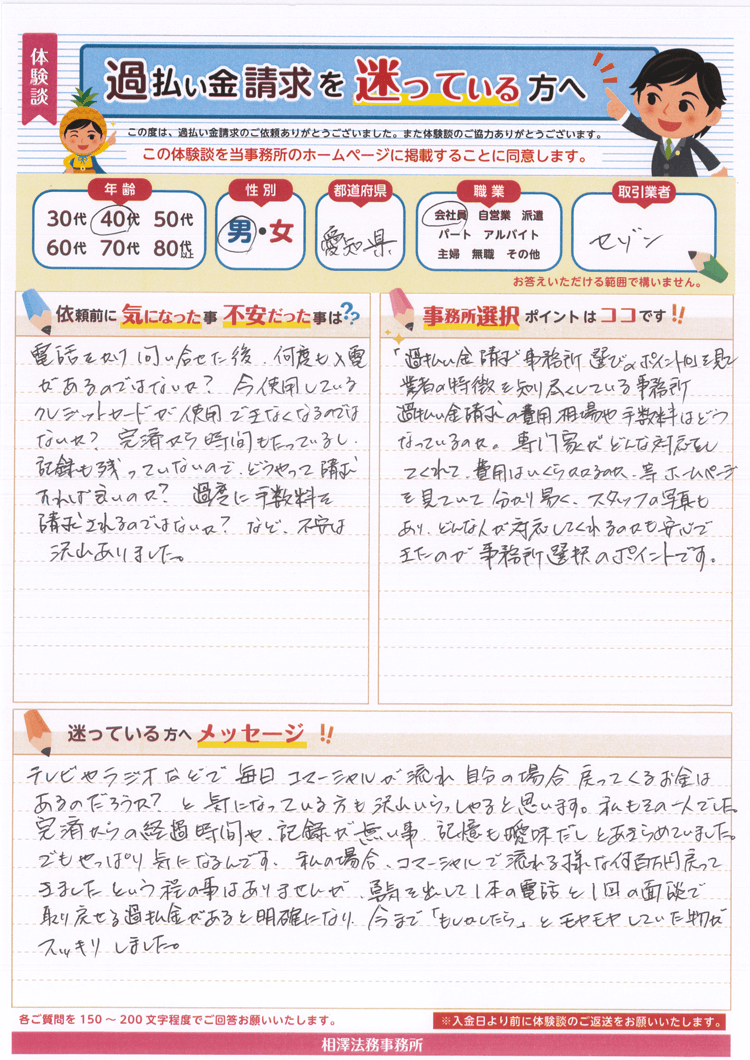 体験談
過払い金請求を迷っている方へ
この度は、過払い金請求のご依頼ありがとうございました。また体験談のご協力ありがとうございます。
この体験談を当事務所のホームページに掲載することに同意します。
年齢
30代 40代 50代
60代 70代 80代以上
性別
男・女
都道府県
愛知県
職業
会社員 自営業 派遣
パート アルバイト
主婦 無職 その他
取引業者
セゾン
お答えいただける範囲で構いません。
依頼前に気になった事 不安だった事は??
電話をかけ問い合せた後、何度も入電
があるのではないか? 今使用している
クレジットカードが使用できなくなるのでは
ないか? 完済から時間もたっているし、
記録も残っていないので、どうやって請求
すれば良いのか? 過度に手数料を
請求されるのではないか? など、不安は
沢山ありました。
事務所選択ポイントはココです!!
「過払い金請求 事務所 選びのポイント」を見て
業者の特徴を知り尽くしている事務所
過払い金請求の費用相場や手数料はどう
なっているのか。専門家がどんな対応をし
てくれて、費用はいくらかかるのか、等 ホームページ
を見ていて分かり易く、スタッフの写真も
あり、どんな人が対応してくれるのかも安心で
きたのが事務所選択のポイントです。
迷っている方へメッセージ!!
テレビやラジオなどで毎日コマーシャルが流れ 自分の場合戻ってくるお金は
あるのだろうか? と気になっている方も沢山いらっしゃると思います。私もその一人でした。
完済からの経過時間や、記録が無い事、記憶も曖昧だしとあきらめていました。
でもやっぱり気になるんです。私の場合、コマーシャルで流れる様な何百万円戻って
きましたという程の事はありませんが、勇気を出して1本の電話と1回の面談で
取り戻せる過払金があると明確になり、今まで「もしかしたら」とモヤモヤしていた物が
スッキリしました。
各ご質問を150～200文字程度でご回答お願いいたします。
※入金日より前に体験談のご返送をお願いいたします。
相澤法務事務所